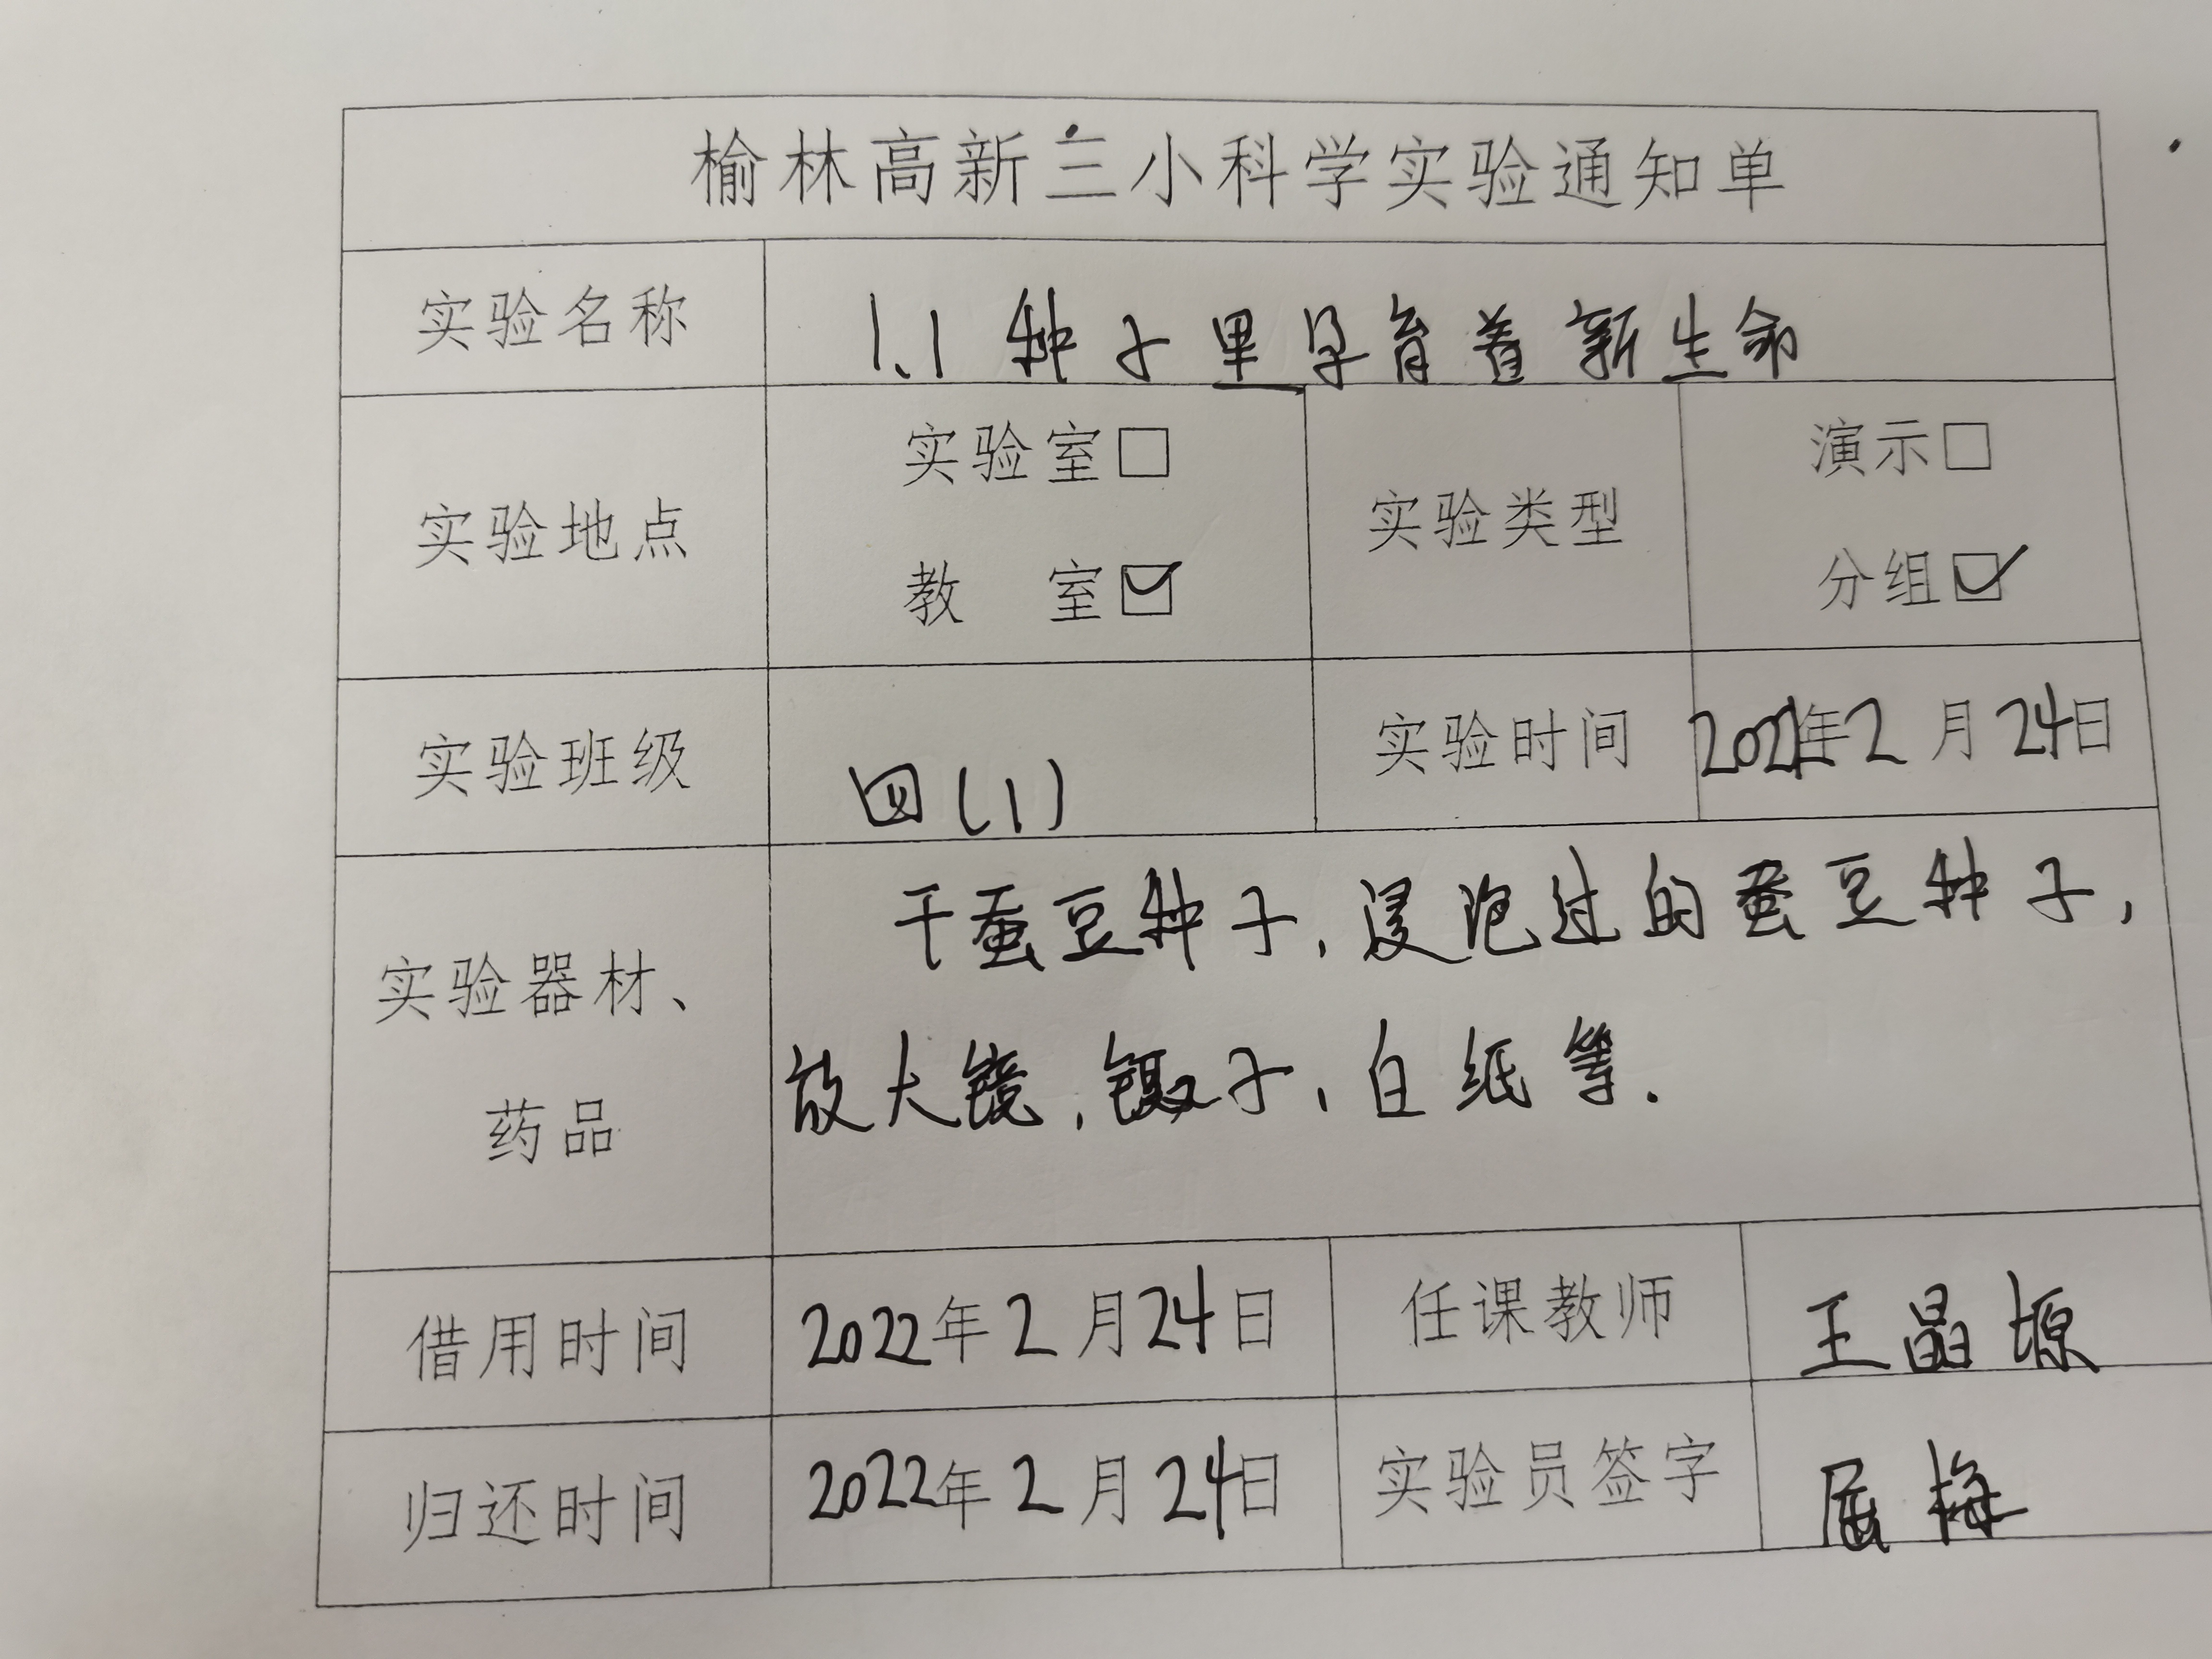 榆林高新三小科学实验通知单
实验名称 1.1 种子里孕育着新生命
实验地点 实验室□ 教 室☑ 实验类型 演示□ 分组☑
实验班级 四(1) 实验时间 2022年2月24日
实验器材、药品 干蚕豆种子,浸泡过的蚕豆种子,
放大镜,镊子,白纸等.
借用时间 2022年2月24日 任课教师 王晶塬
归还时间 2022年2月24日 实验员签字 屈梅